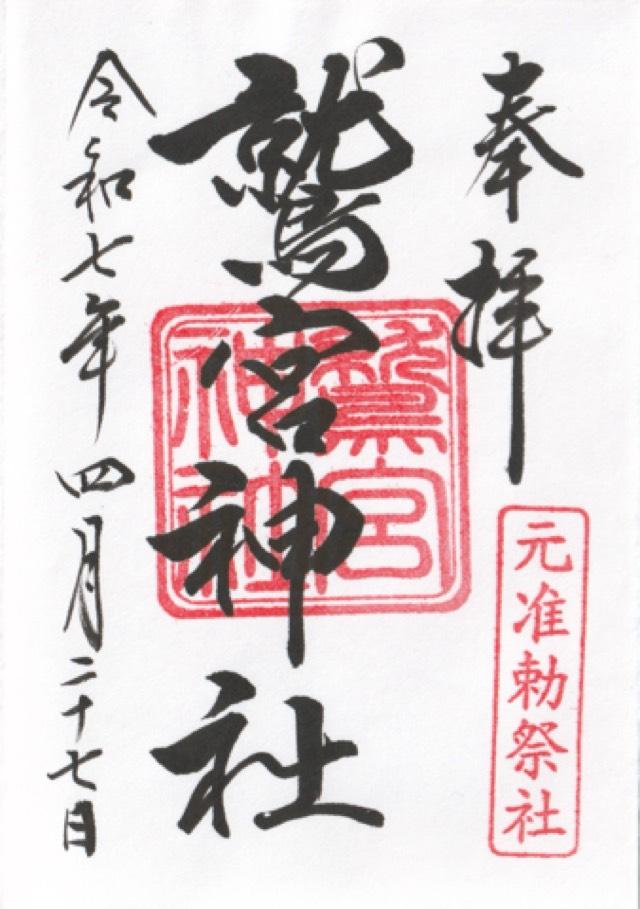 奉拝
元准勅祭社
鷲宮神社
鷲宮
神社
令和七年四月二十七日